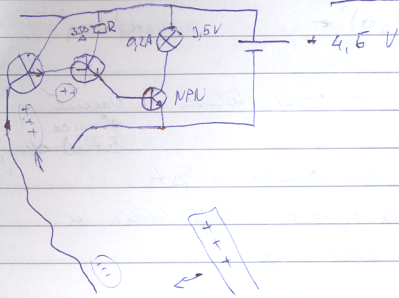 330 R
0,2A 3,5V
4,5 V
++
+++
NPN
---
+++